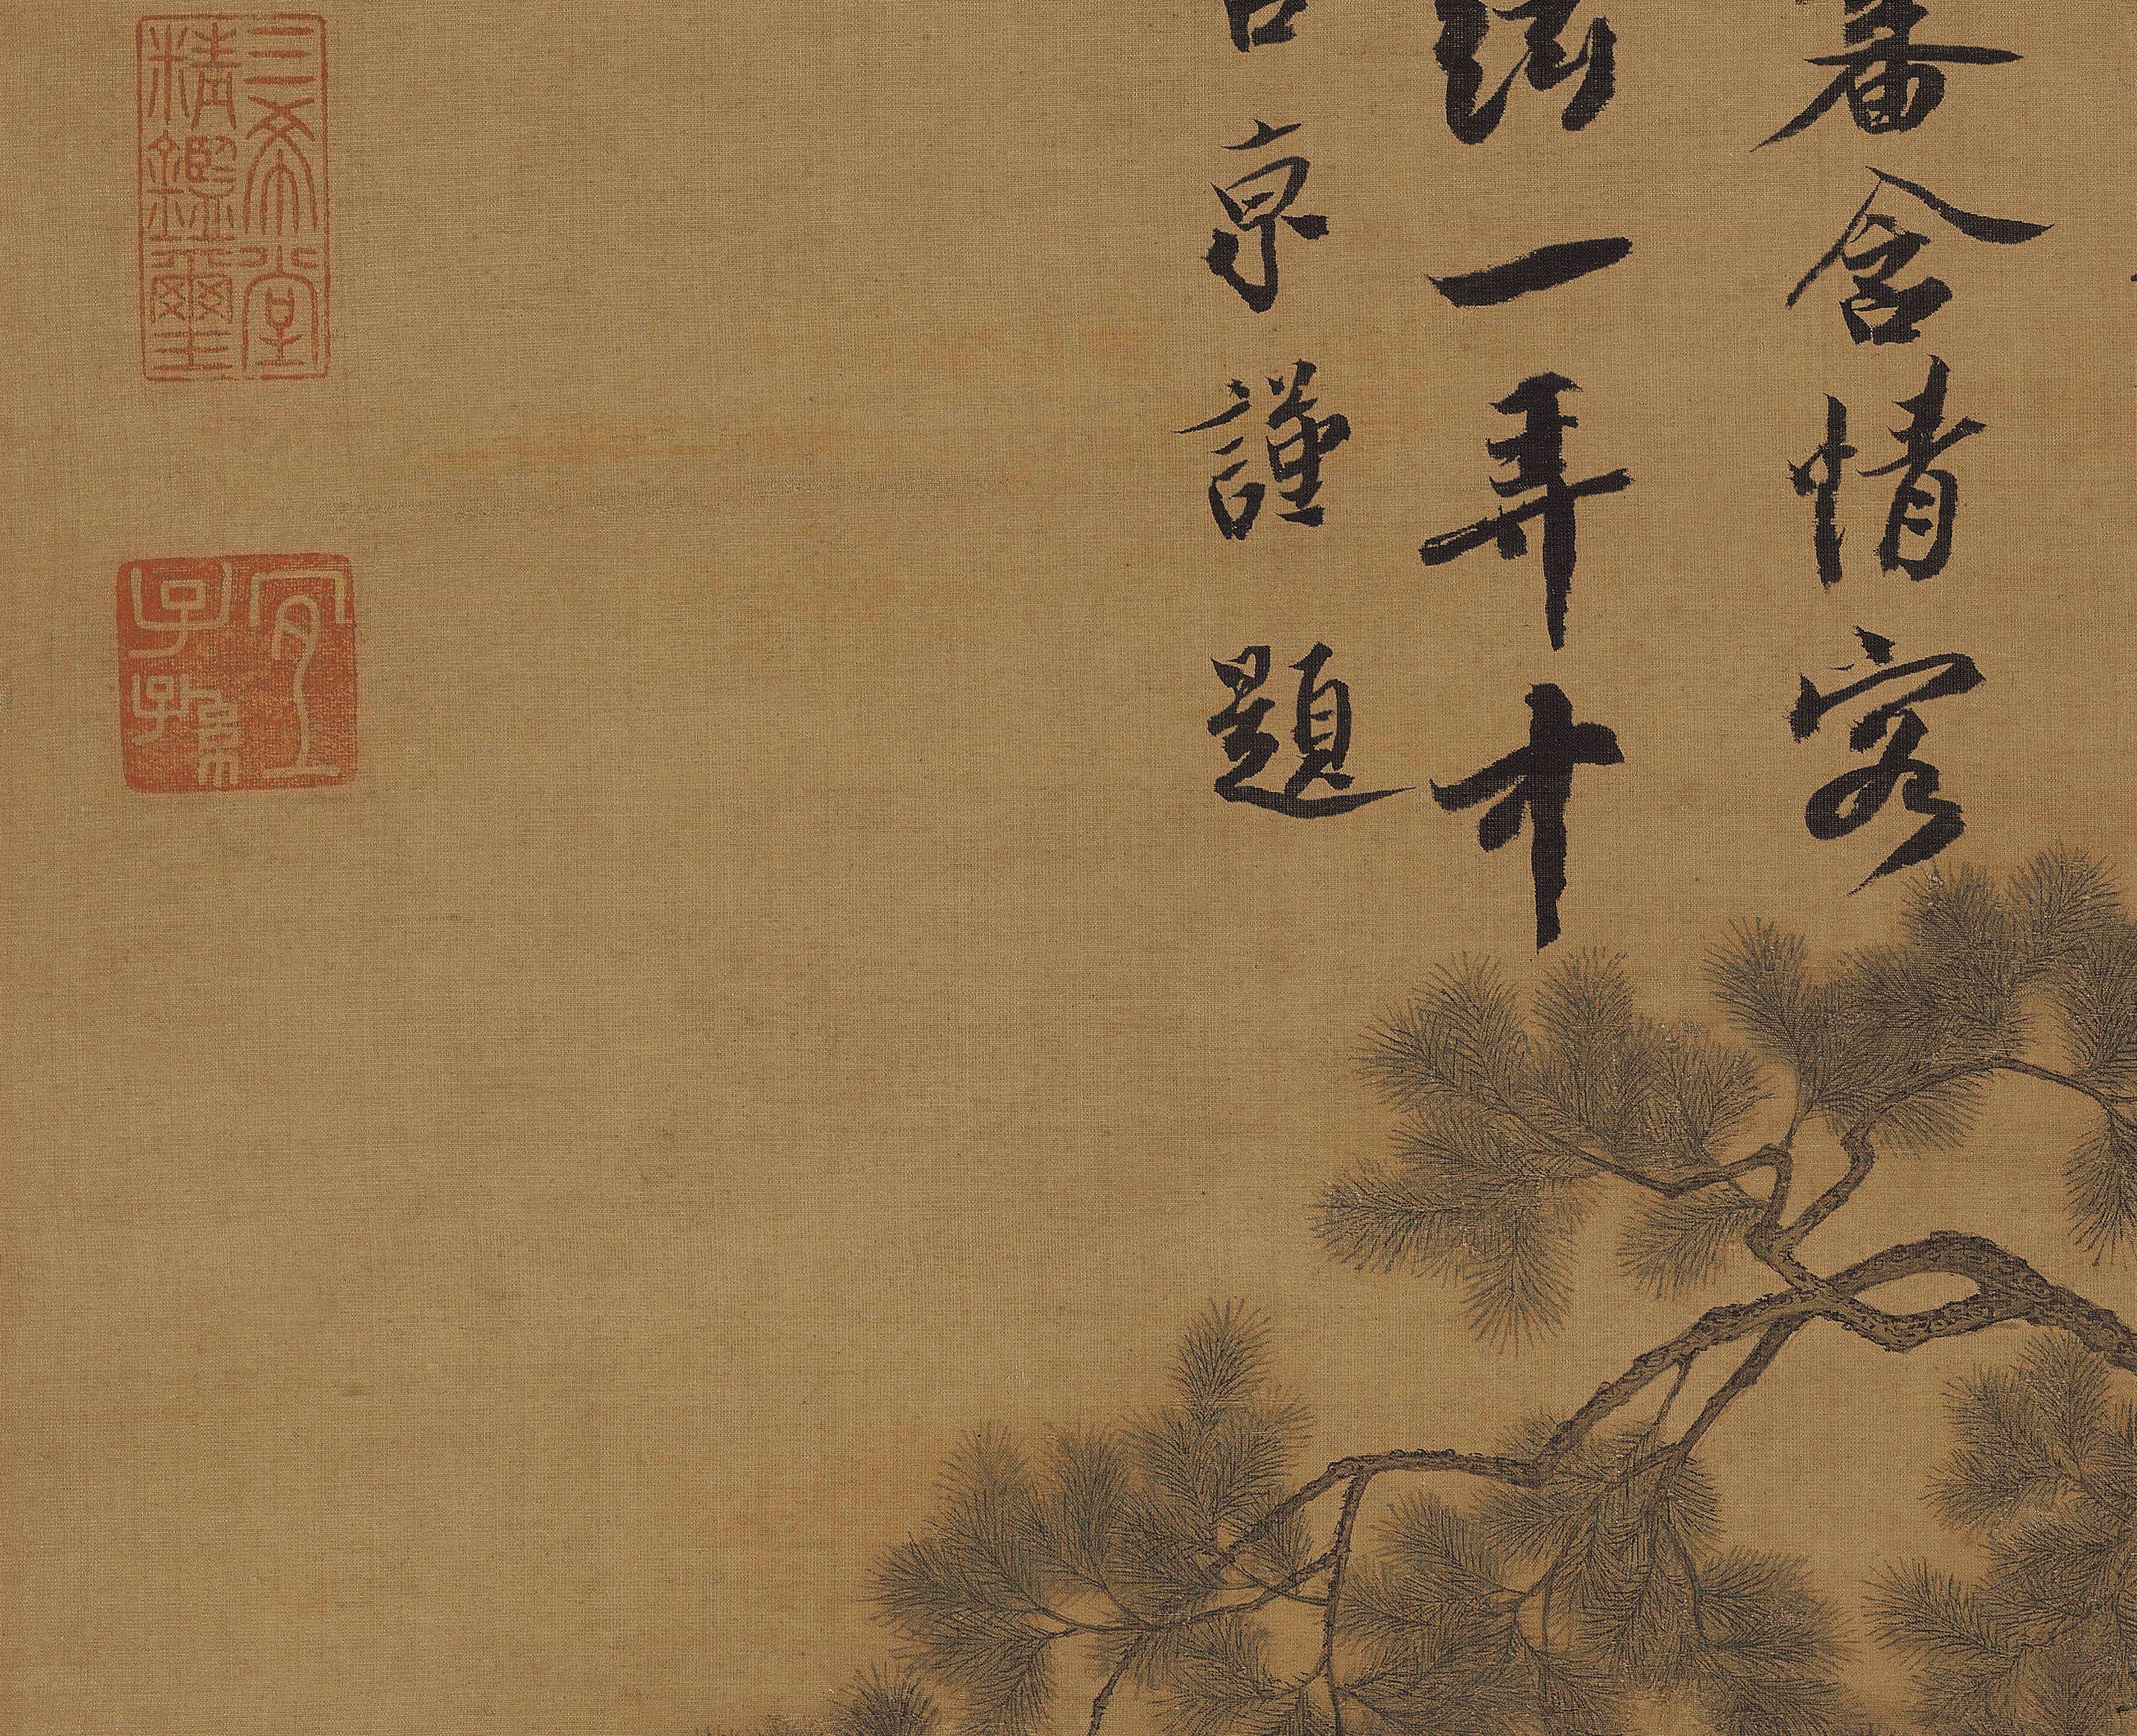 審含情客
絃一弄中
京謹題
三希堂
精鑑璽
宜子孫